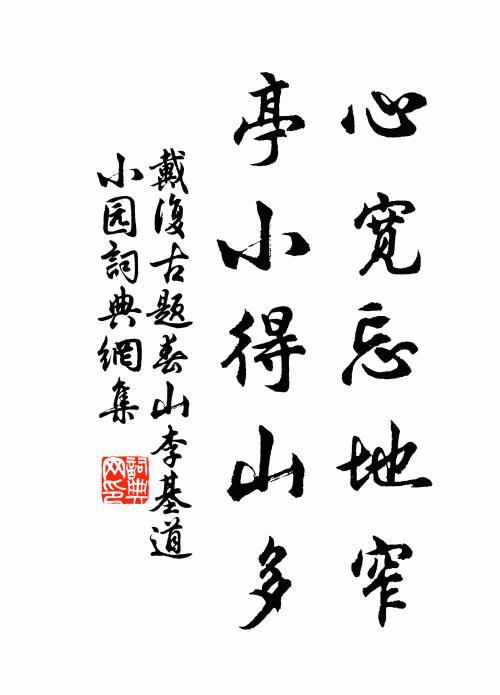 心寬忘地窄
亭小得山多
戴復古題春山李基道
小园詞典網集
詞典
网印